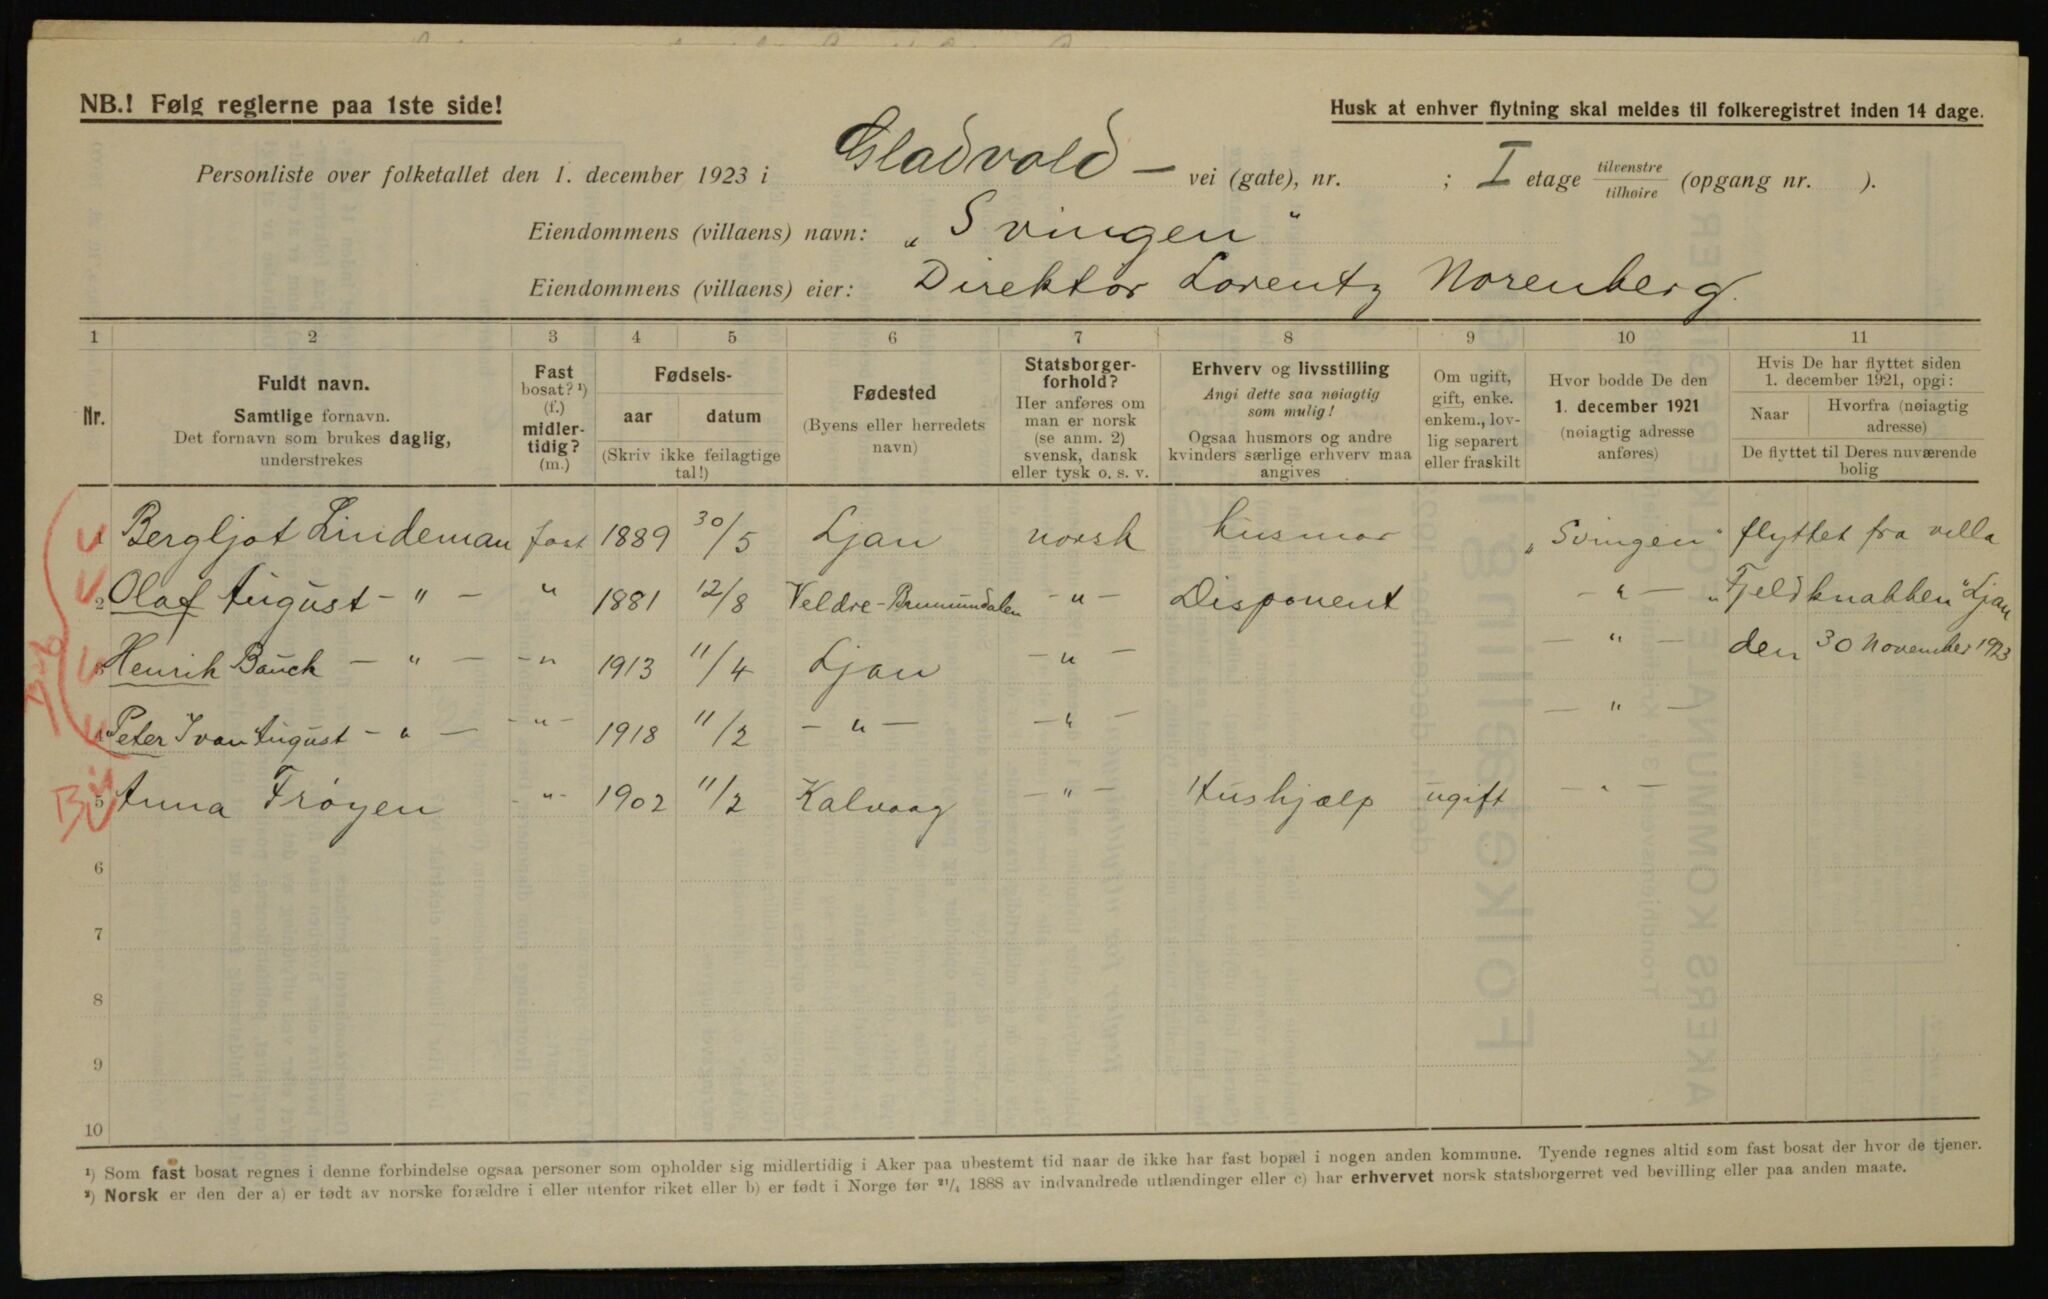 NB.! Følg reglerne paa 1ste side!
Husk at enhver flytning skal meldes til folkeregistret inden 14 dage.
Personliste over folketallet den 1. december 1923 i Gladvold — vei (gate), nr. ; I etage tilvenstre tilhøire (opgang nr. ).
Eiendommens (villaens) navn: „Svingen“
Eiendommens (villaens) eier: Direktør Lorentz Norenberg.
1 2 3 4 5 6 7 8 9 10 11
Nr.
Fuldt navn.
Samtlige fornavn.
Det fornavn som brukes daglig,
understrekes
Fast
bosat? ¹)
(f.)
midler-
tidig?
(m.)
Fødsels-
aar datum
(Skriv ikke feilagtige
tal!)
Fødested
(Byens eller herredets
navn)
Statsborger-
forhold?
Her anføres om
man er norsk
(se anm. 2)
svensk, dansk
eller tysk o. s. v.
Erhverv og livsstilling
Angi dette saa nøiagtig
som mulig!
Ogsaa husmors og andre
kvinders særlige erhverv maa
angives
Om ugift,
gift, enke.
enkem., lov-
lig separert
eller fraskilt
Hvor bodde De den
1. december 1921
(nøiagtig adresse
anføres)
Hvis De har flyttet siden
1. december 1921, opgi:
Naar Hvorfra (nøiagtig
adresse)
De flyttet til Deres nuværende
bolig
1 Bergljot Lindeman fast 1889 30/5 Ljan norsk husmor „Svingen“ flyttet fra villa
2 Olaf August — " — " 1881 12/8 Veldre-Brumunddalen — " — Disponent — " — „Fjeldknabben“ Ljan
3 Henrik Bauck — " — — " 1913 11/4 Ljan — " — — " — den 30 November 1923
4 Peter Ivan August — " — — " — 1918 11/2 — " — — " — — " —
5 Anna Frøyen — " — 1902 11/2 Kalvaag — " — Hushjælp ugift — " —
6
7
8
9
10
¹) Som fast bosat regnes i denne forbindelse ogsaa personer som opholder sig midlertidig i Aker paa ubestemt tid naar de ikke har fast bopæl i nogen anden kommune. Tyende regnes altid som fast bosat der hvor de tjener.
²) Norsk er den der a) er født av norske forældre i eller utenfor riket eller b) er født i Norge før ²¹/₄ 1888 av indvandrede utlændinger eller c) har erhvervet norsk statsborgerret ved bevilling eller paa anden maate.